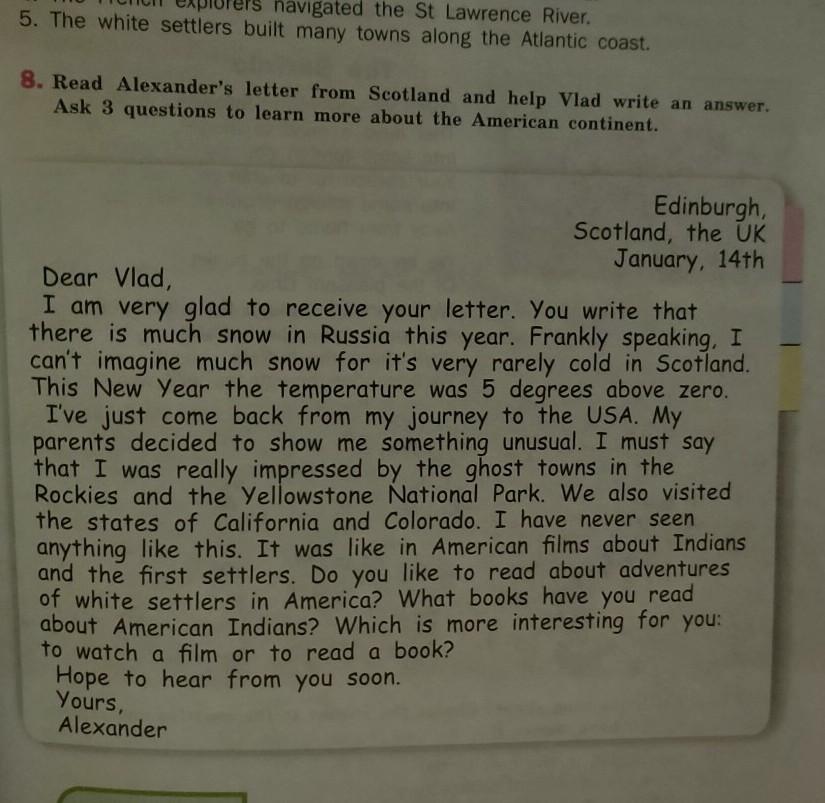 French explorers navigated the St Lawrence River.
5. The white settlers built many towns along the Atlantic coast.
8. Read Alexander's letter from Scotland and help Vlad write an answer.
Ask 3 questions to learn more about the American continent.
Edinburgh,
Scotland, the UK
January, 14th
Dear Vlad,
I am very glad to receive your letter. You write that
there is much snow in Russia this year. Frankly speaking, I
can't imagine much snow for it's very rarely cold in Scotland.
This New Year the temperature was 5 degrees above zero.
I've just come back from my journey to the USA. My
parents decided to show me something unusual. I must say
that I was really impressed by the ghost towns in the
Rockies and the Yellowstone National Park. We also visited
the states of California and Colorado. I have never seen
anything like this. It was like in American films about Indians
and the first settlers. Do you like to read about adventures
of white settlers in America? What books have you read
about American Indians? Which is more interesting for you:
to watch a film or to read a book?
Hope to hear from you soon.
Yours,
Alexander